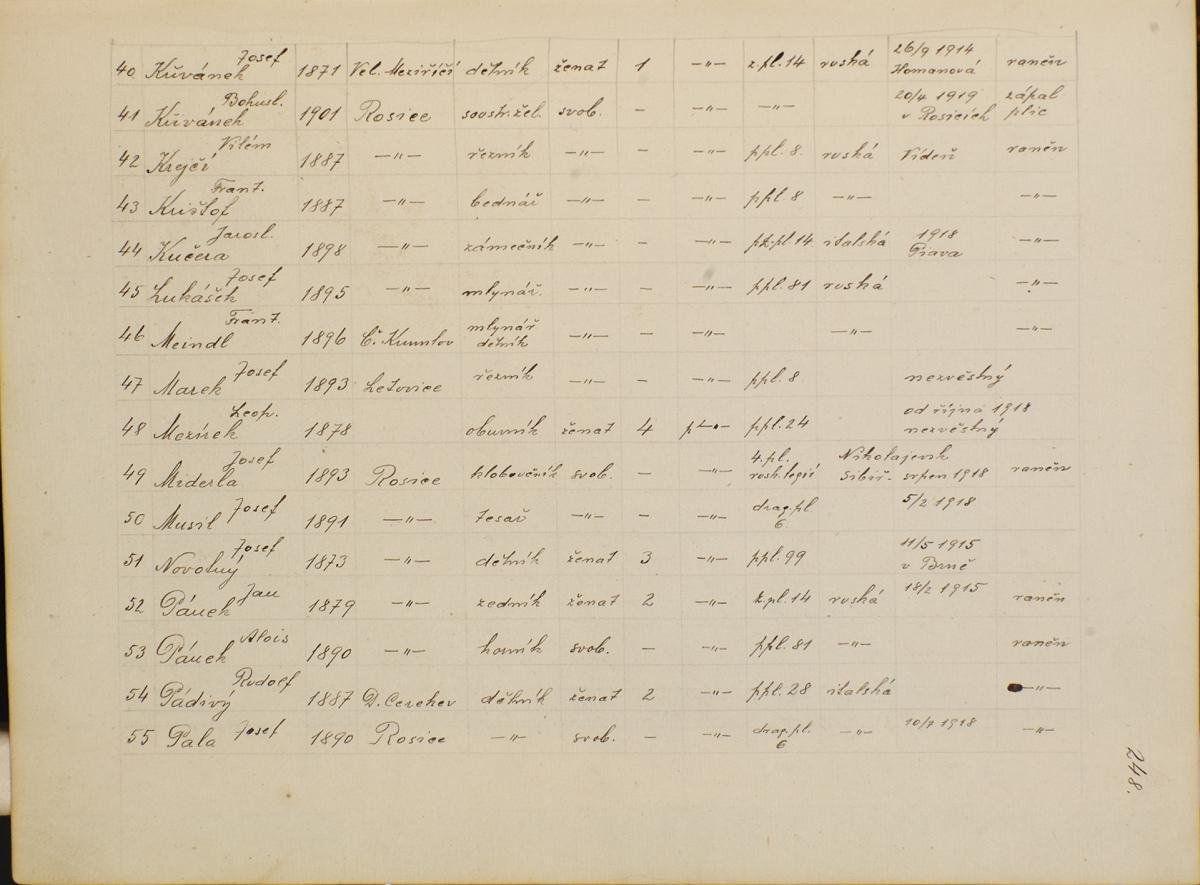 40 Křivánek Josef 1871 Vel. Meziříčí dělník ženat 1 —"— z.pl.14 ruská 26/9 1914 Homanová raněn
41 Křivánek Bohusl. 1901 Rosice soustr.žel. svob. - —"— —"— 20/4 1919 v Rosicích zápal plic
42 Krejčí Vilém 1887 —"— řezník —"— - —"— ppl. 8. ruská Vídeň raněn
43 Krištof Frant. 1887 —"— bednář —"— - —"— ppl. 8 —"— —"—
44 Kučera Jarosl. 1898 —"— zámečník —"— - —"— pz.pl.14 italská 1918 Piava —"—
45 Lukášek Josef 1895 —"— mlynář. —"— - —"— ppl. 81 ruská —"—
46 Meindl Frant. 1896 Č. Krumlov mlynář dělník —"— - —"— —"— —"—
47 Marek Josef 1893 Letovice řezník —"— - —"— ppl. 8 nezvěstný
48 Mezírek Leop. 1878 obuvník ženat 4 —"— ppl. 24 od října 1918 nezvěstný
49 Miderla Josef 1893 Rosice kloboučník svob. - —"— 4. pl. rusk. legií Nikolajevsk Sibiř- srpen 1918 raněn
50 Musil Josef 1891 —"— tesař —"— - —"— drag.pl. 6 5/2 1918
51 Novotný Josef 1873 —"— dělník ženat 3 —"— ppl. 99 11/5 1915 v Brně
52 Pánek Jan 1879 —"— zedník ženat 2 —"— z.pl. 14 ruská 18/2 1915 raněn
53 Pánek Alois 1890 —"— horník svob. - —"— ppl. 81 —"— raněn
54 Pádivý Rudolf 1887 D. Cerekev dělník ženat 2 —"— ppl. 28 italská —"—
55 Pala Josef 1890 Rosice —"— svob. - —"— drag.pl. 6 —"— 10/7 1918 —"—
248.